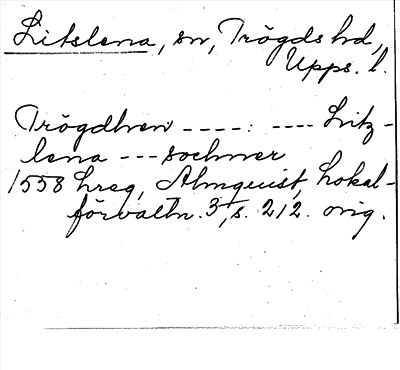 Litslena, sn, Trögds hd,
Upps. l.
Trögdhren ----: ---- Litz-
lena --- sochner
1558 hreg, Almquist, Lokal-
förvaltn. 3, s. 212. orig.